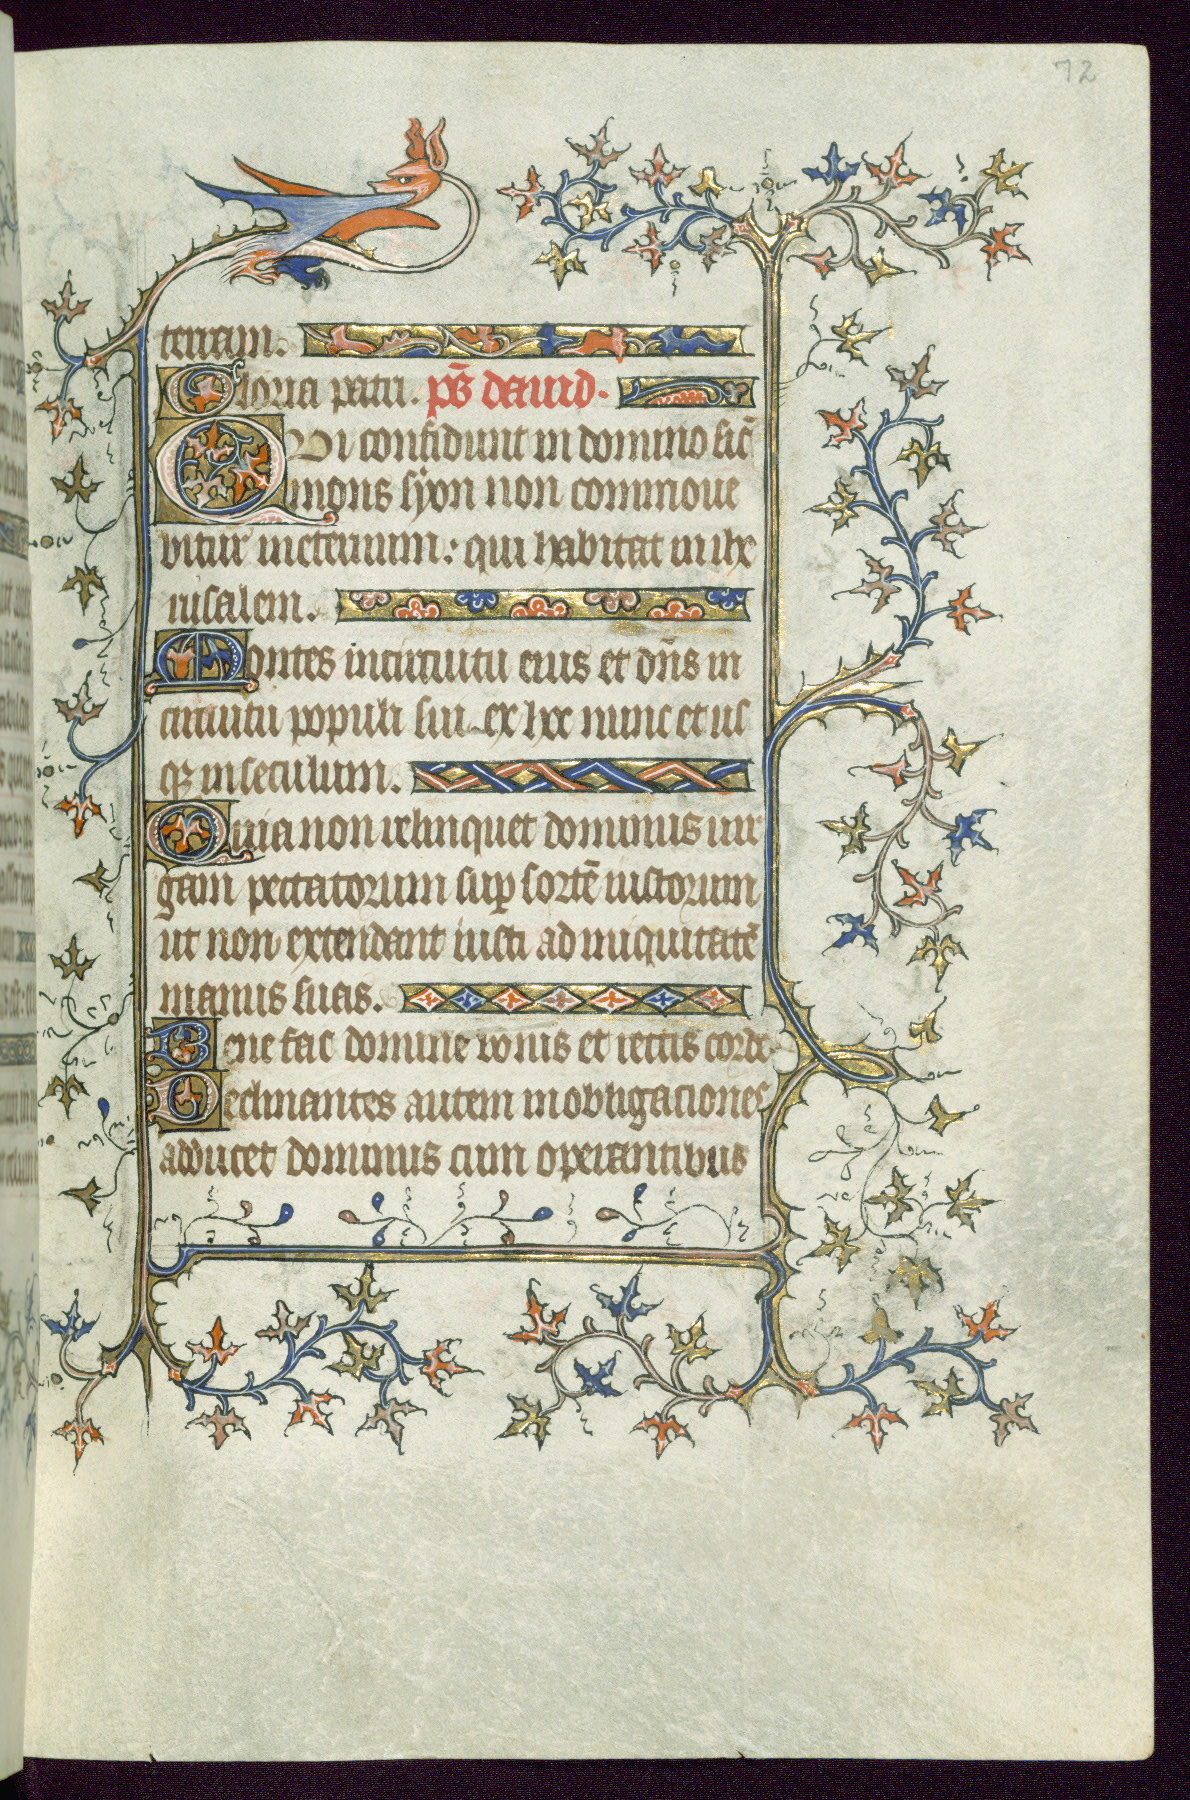 72
terram.
Gloria patri. ps̄ dauid.
Qvi confidunt in domino sic̄
mons syon non commoue
bitur ineternum: qui habitat in ihe
rusalem.
Montes incircuitu eius et dn̄s in
circuitu populi sui ex hoc nunc et us
qꝫ inseculum.
Quia non relinquet dominus uir
gam peccatorum suꝑ sortē iustorum
ut non extendant iusti ad iniquitatē
manus suas.
Bene fac domine bonis et rectis corde
Declinantes autem inobligaciones
adducet dominus cum operantibus